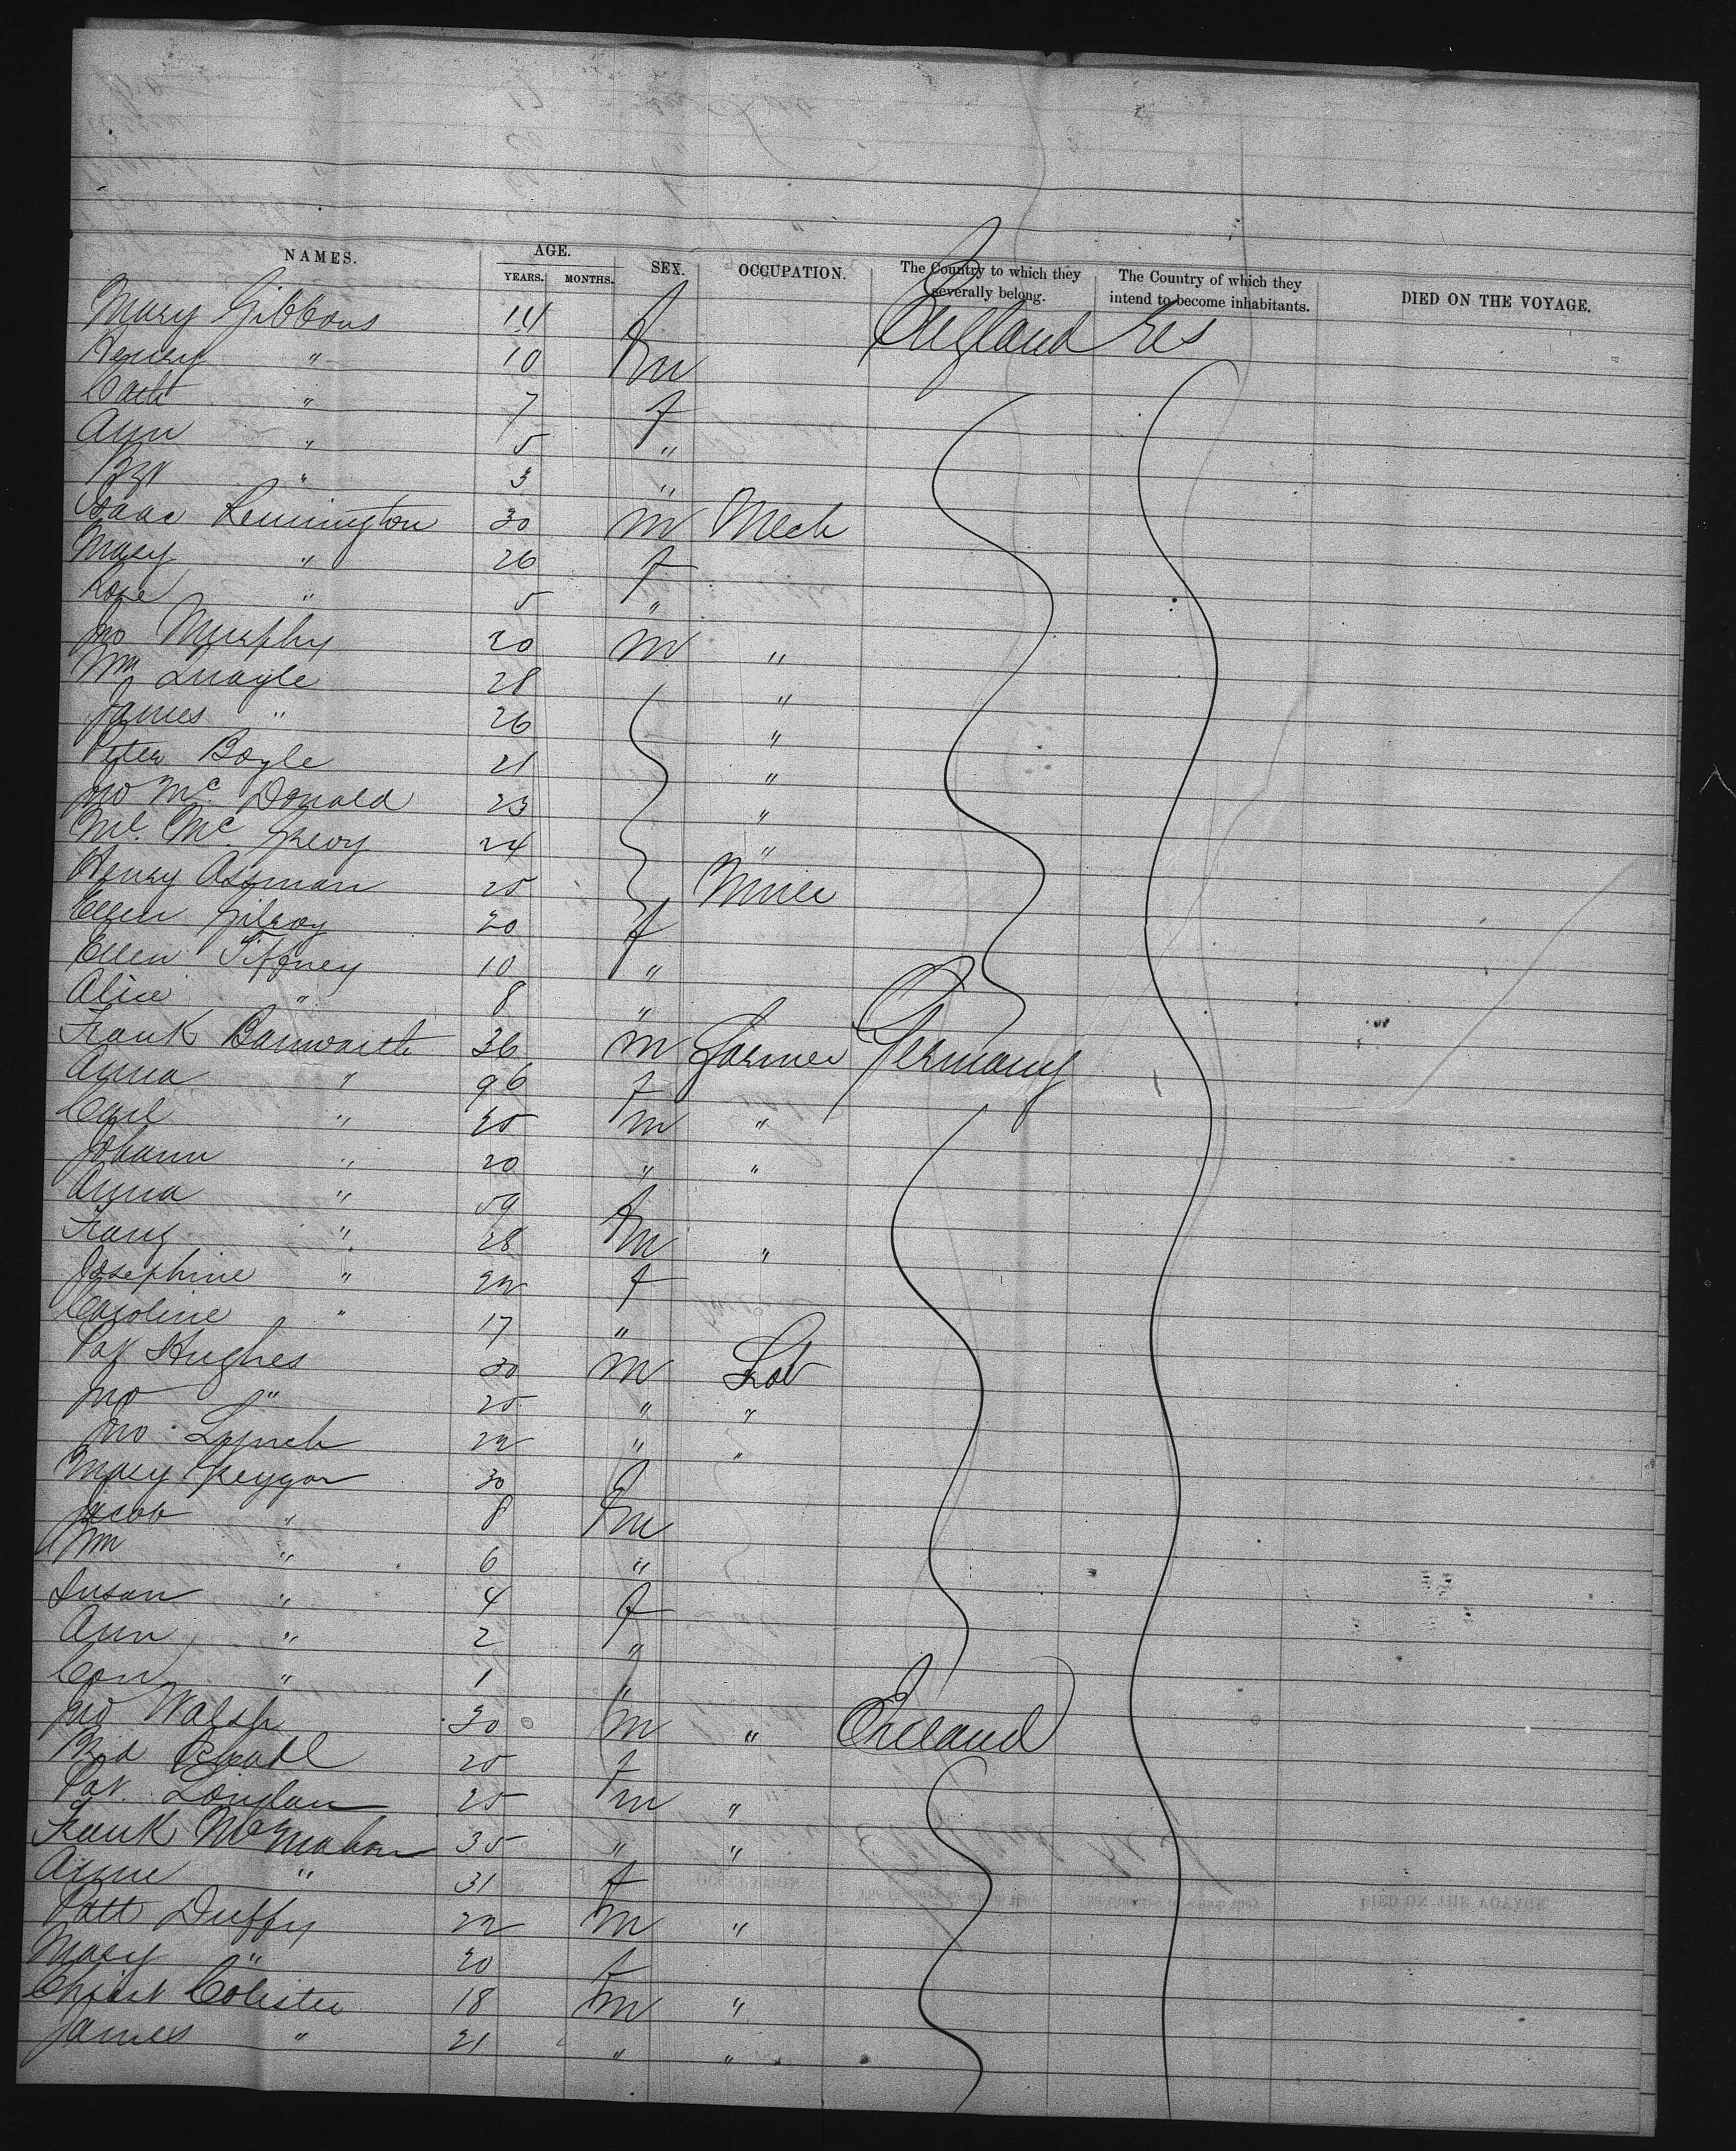 NAMES. AGE. SEX. OCCUPATION. The Country to which they severally belong. The Country of which they intend to become inhabitants. DIED ON THE VOYAGE.
YEARS. MONTHS.
Mary Gibbons 14 f England
Henry " 10 m
Cath " 7 f
Ann " 5 "
" 3 "
Isaac Remington 30 m Mech
Mary " 26 f
Rose " 5 "
Jno Murphy 20 m "
Wm Quayle 28 "
James " 26 "
Peter Boyle 21 "
Jno Mc Donald 23 "
Ml. Mc Grevy 24 "
Henry Assman 25 Miner
Ellen Gilroy 20 f
Ellen Tiffney 10 "
Alice " 8 "
Frank Banwarth 36 m Farmer Germany
Anna " 96 f
Carl " 25 m "
Johann " 20 " "
Anna " 59 f
Franz " 28 m "
Josephine " 22 f
Caroline " 17 "
Pat Hughes 30 m Lab
Jno " 25 " "
Jno Lynch 22 " "
Mary Greygor 30 f
Jacob " 8 m
Wm " 6 "
Susan " 4 f
Ann " 2 "
Con " 1 "
Jno Walsh 30 m " Ireland
Brd 25 f
Pat. 25 m "
Frank McMahon 35 " "
Anne " 31 f
Patt Duffy 22 m "
Mary " 20 f
Christ Colister 18 m "
James " 21 " "